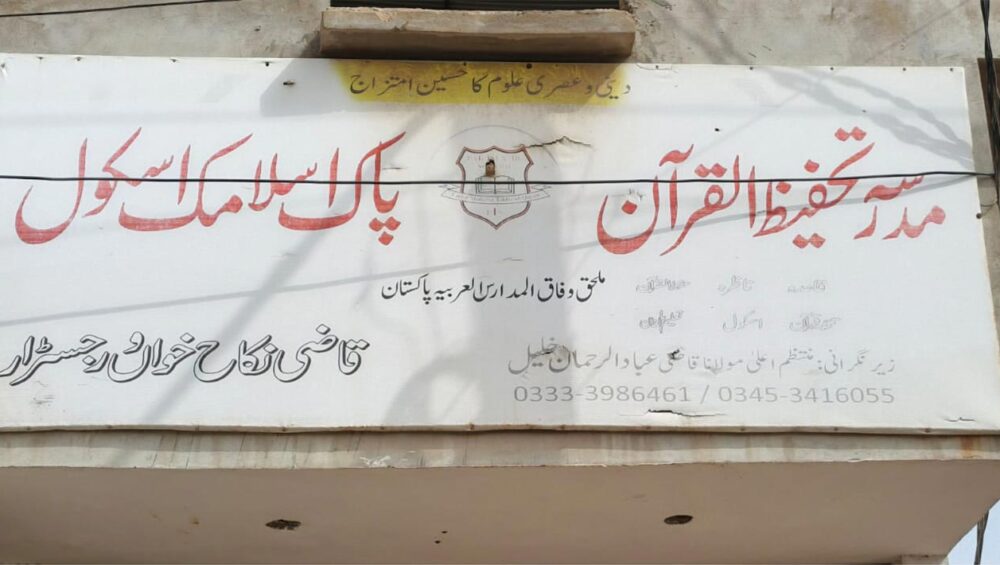 دینی و عصری علوم کا حسین امتزاج
مدرسہ تحفیظ القرآن
پاک اسلامک اسکول
ملحق وفاق المدارس العربیہ پاکستان
قاعدہ ناظرہ
اسکول
قاضی نکاح خواں و رجسٹرار
زیر نگرانی: منتظم اعلیٰ مولانا قاضی عباد الرحمان خلیل
0333-3986461 / 0345-3416055